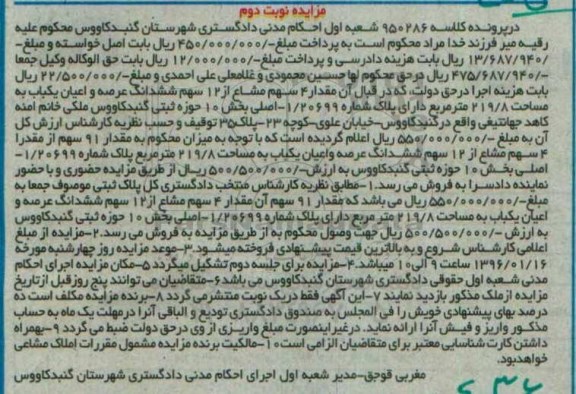 مزایده نوبت دوم
در پرونده کلاسه ۹۵۰۲۸۶ شعبه اول احکام مدنی دادگستری شهرستان گنبدکاووس محکوم علیه
رقیه میر فرزند خدا مراد محکوم است به پرداخت مبلغ-/۴۵۰/۰۰۰/۰۰۰ ریال بابت اصل خواسته و مبلغ-
/۱۳/۶۸۷/۹۴۰ ریال بابت هزینه دادرسی و پرداخت مبلغ-/۱۲/۰۰۰/۰۰۰ ریال بابت حق الوکاله وکیل جمعا
-/۴۷۵/۶۸۷/۹۴۰ ریال درحق محکوم لها حسین محمودی و غلامعلی علی احمدی و مبلغ-/۲۲/۵۰۰/۰۰۰ ریال
بابت هزینه اجرا درحق دولت، که در قبال آن مقدار ۴ سهم مشاع از ۱۲ سهم ششدانگ عرصه و اعیان یکباب به
مساحت ۲۱۹/۸ مترمربع دارای پلاک شماره ۱/۲۰۶۹۹-اصلی بخش ۱۰ حوزه ثبتی گنبدکاووس ملکی خانم امنه
کاهد جهانتیغی واقع در گنبدکاووس-خیابان علوی-کوچه ۲۳-پلاک ۳۵ توقیف و حسب نظریه کارشناس ارزش کل
آن به مبلغ -/۵۵۰/۰۰۰/۰۰۰ ریال اعلام گردیده است که با توجه به میزان محکوم به مقدار ۹۱ سهم از مقدرا
۴ سهم مشاع از ۱۲ سهم ششدانگ عرصه واعیان یکباب به مساحت ۲۱۹/۸ مترمربع پلاک شماره ۱/۲۰۶۹۹-
اصلی بخش ۱۰ حوزه ثبتی گنبدکاووس به ارزش-/۵۰۰/۵۰۰/۰۰۰ ریال از طریق مزایده حضوری و با حضور
نماینده دادسرا به فروش می رسد.۱-مطابق نظریه کارشناس منتخب دادگستری کل پلاک ثبتی موصوف جمعا به
مبلغ-/۵۵۰/۰۰۰/۰۰۰ ریال می باشد که مقدار ۹۱ سهم آن مقدار ۴ سهم مشاع از ۱۲ سهم ششدانگ عرصه و
اعیان یکباب به مساحت ۲۱۹/۸ متر مربع دارای پلاک شماره ۱/۲۰۶۹۹-اصلی بخش ۱۰ حوزه ثبتی گنبدکاووس
به ارزش -/۵۰۰/۵۰۰/۰۰۰ ریال جهت وصول محکوم به از طریق مزایده به فروش می رسد.۲-مزایده از مبلغ
اعلامی کارشناس شروع و به بالاترین قیمت پیشنهادی فروخته میشود.۳-موعد مزایده روز چهارشنبه مورخه
۱۳۹۶/۰۱/۱۶ ساعت ۹ الی ۱۰ میباشد.۴-مزایده برای جلسه دوم تشکیل میگردد ۵-مکان مزایده اجرای احکام
مدنی شعبه اول حقوقی دادگستری شهرستان گنبدکاووس می باشد ۶-متقاضیان می توانند پنج روز قبل از تاریخ
مزایده از ملک مذکور بازدید نمایند ۷-این آگهی فقط در یک نوبت منتشر می گردد ۸-برنده مزایده مکلف است ده
درصد بهای پیشنهادی خویش را فی المجلس به صندوق دادگستری تودیع و الباقی آنرا درمهلت یک ماه به حساب
مذکور واریز و فیش آنرا ارائه نماید. در غیر اینصورت مبلغ واریزی از وی در حق دولت ضبط می گردد ۹-بهمراه
داشتن کارت شناسایی معتبر برای متقاضیان الزامی است ۱۰-مالکیت برنده مزایده مشمول مقررات املاک مشاعی
خواهدبود.
مغربی قوجق-مدیر شعبه اول اجرای احکام مدنی دادگستری شهرستان گنبدکاووس